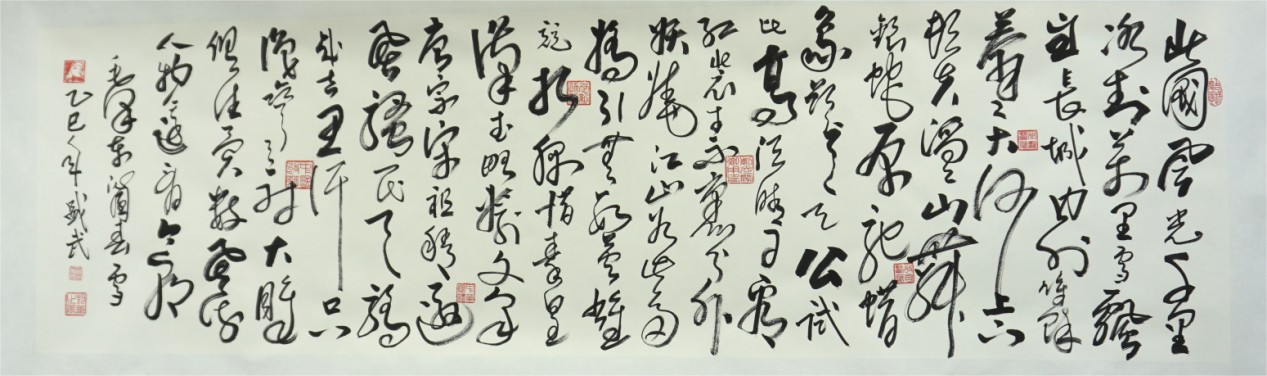 北國風光千里
冰封萬里雪飄
望長城内外惟餘
莽莽大河上下
頓失滔滔山舞
銀蛇原馳蠟
象欲與天公試
比高須晴日看
紅裝素裹分外
妖嬈江山如此多
嬌引無數英雄
競折腰惜秦皇
漢武略輸文采
唐宗宋祖稍遜
風騷一代天驕
成吉思汗只
識彎弓射大雕
俱往矣數風流
人物還看今朝
毛澤東沁園春雪
乙巳年